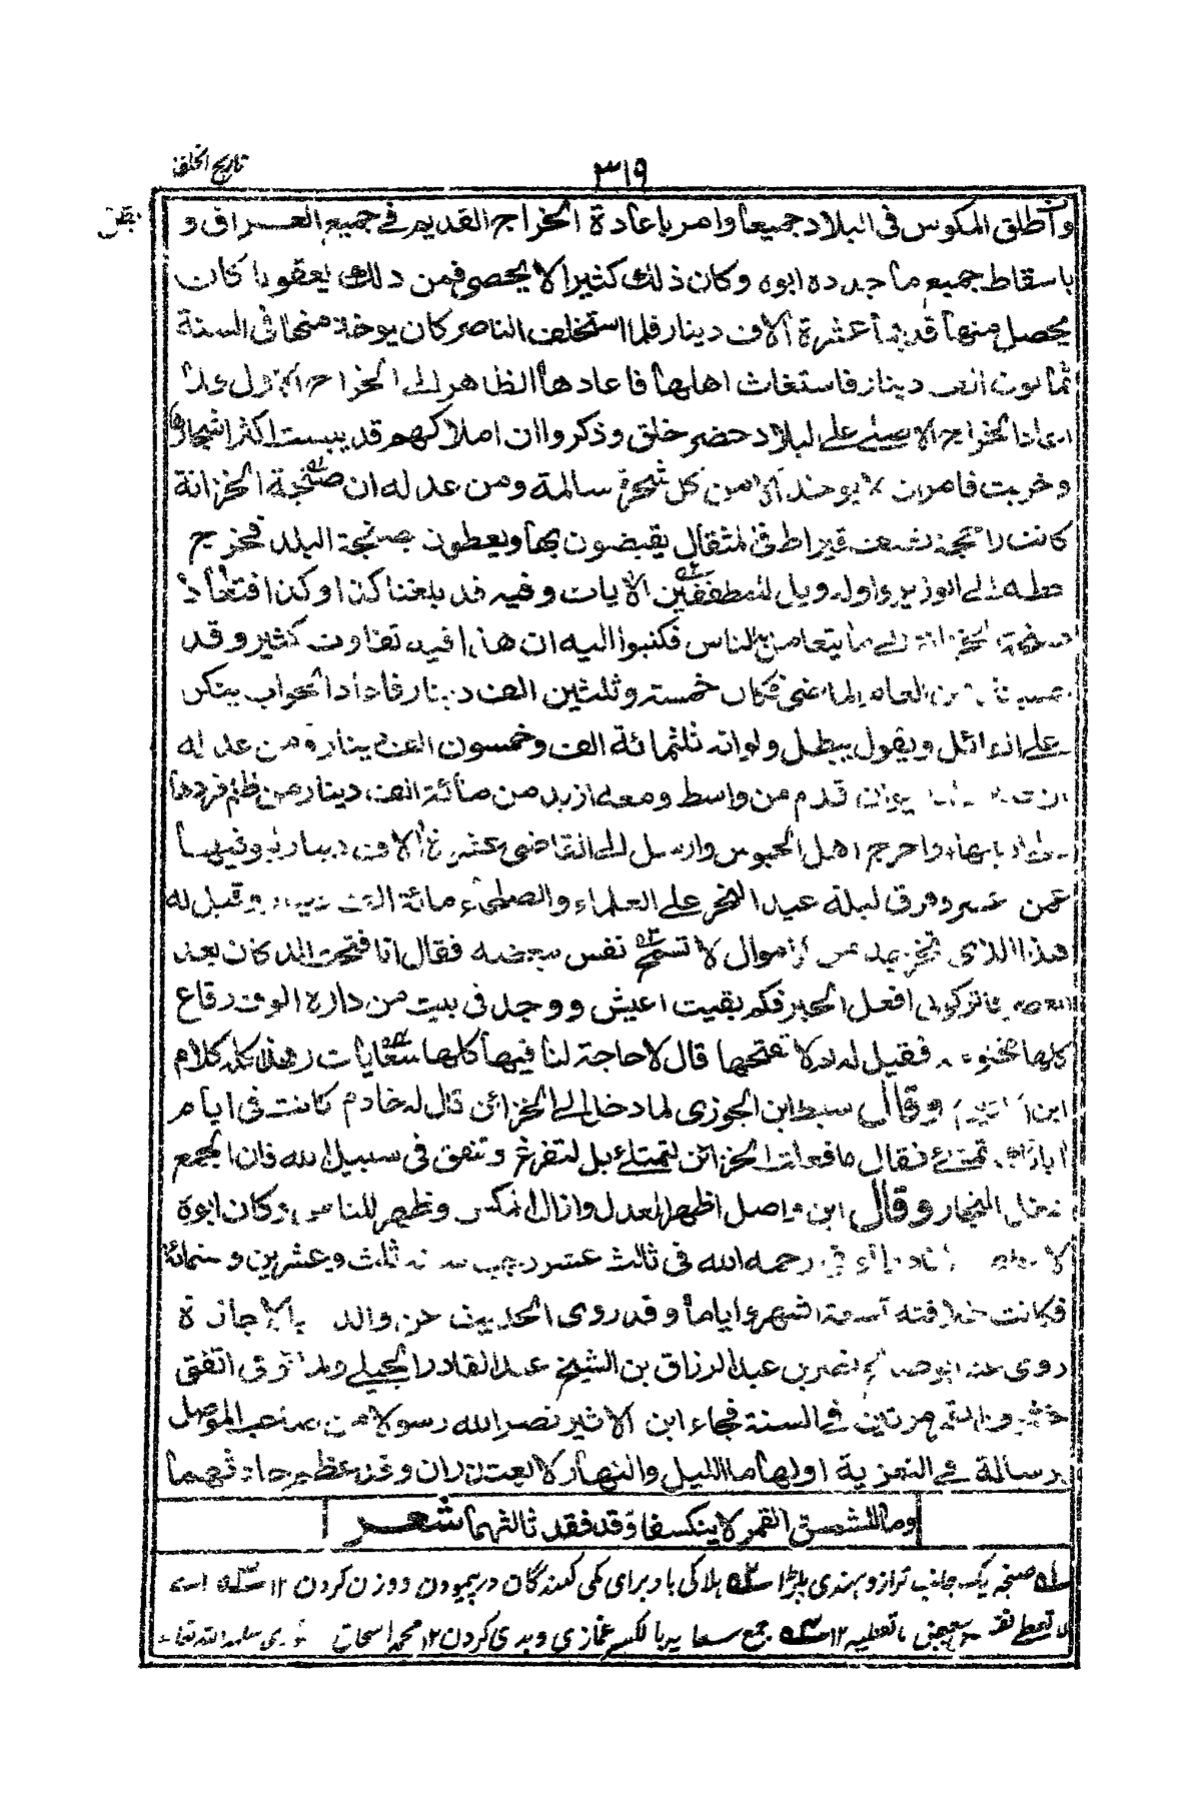 تاريخ الخلفا
٣١٩
وأطلق المكوس في البلاد جميعا وامر باعادة الخراج القديم في جميع العراق و
باسقاط جميع ما جدده ابوه وكان ذلك كثيرا لا يحصى فمن ذلك يعقوبا كان
يحصل منها قديما عشرة آلاف دينار فلما استخلف الناصر كان يوخذ منها في السنة
ثمانون الف دينار فاستغاث اهلها فاعادها الظاهر الى الخراج الاول ولما
اعاد الخراج الاصلي على البلاد حضر خلق وذكروا ان املاكهم قد يبست اكثر اشجارها
وخربت فامر ان لا يوخذ الا من كل شجرة سالمة ومن عدله ان صنجة الخزانة
كانت راجحة نصف قيراط في المثقال يقبضون بها ويعطون بصنجة البلد فخرج
خطه الى الوزير واوله ويل للمطففين الآيات وفيه قد بلغنا كذا وكذا فتعاد
صنجة الخزانة الى ما يتعامل به الناس فكتبوا اليه ان هذا فيه تفاوت كثير وقد
العام الماضي فكان خمسة وثلثين الف دينار فاعاد الجواب ينكر
على القائل ويقول يبطل ولو انه ثلثمائة الف وخمسون الف دينار ومن عدله
ان قدم من واسط ومعه ازيد من مائة الف دينار من ظلم فردها
واخرج اهل الحبوس وارسل الى القاضي عشرة آلاف دينار ليوفيها
عمن اعسر وفرق ليلة عيد النحر على العلماء والصلحاء مائة الف دينار وقيل له
هذا الذي تخرجه من الاموال لا تسمح نفس ببعضه فقال انا فتحت الدكان بعد
العصر فاتركوني افعل الخير فكم بقيت اعيش ووجد في بيت من داره الوف رقاع
كلها مختومة فقيل له لم لا تفتحها قال لا حاجة لنا فيها كلها سعايات وهذا كله كلام
ابن الاثير وقال سبط ابن الجوزي لما دخل الى الخزائن قال له خادم كانت في ايام
ابائك تمتلئ فقال ما فعلت الخزائن لتمتلئ بل لتفرغ وتنفق في سبيل الله فان الجمع
شغل التجار وقال ابن واصل اظهر العدل وازال المكس وظهر للناس وكان ابوه
لا توفي رحمه الله في ثالث عشر رجب سنة ثلث وعشرين وستمائة
فكانت خلافته تسعة اشهر واياما وقد روى الحديث عن والده بالاجازة
روى عنه ابو صالح نصر بن عبد الرزاق بن الشيخ عبد القادر الجيلي ولما توفي اتفق
خسوف القمر مرتين في السنة فجاء ابن الاثير نصر الله رسولا من صاحب الموصل
برسالة في التعزية اولها ما لليل والنهار لا يعتذران وقد عظم حادثهما
وما للشمس والقمر لا ينكسفان وقد فقد ثالثهما شعر
صنجه يك جانب ترازو بهندي پلڑا هلاكى باد براى كمى كنندگان در پيمودن ووزن كردن ١٢
لا تعطى نفس ١٢ جمع سعاية بالكسر غمازي وبدي كردن ١٢ محمد اسحاق سلمه الله تعالى